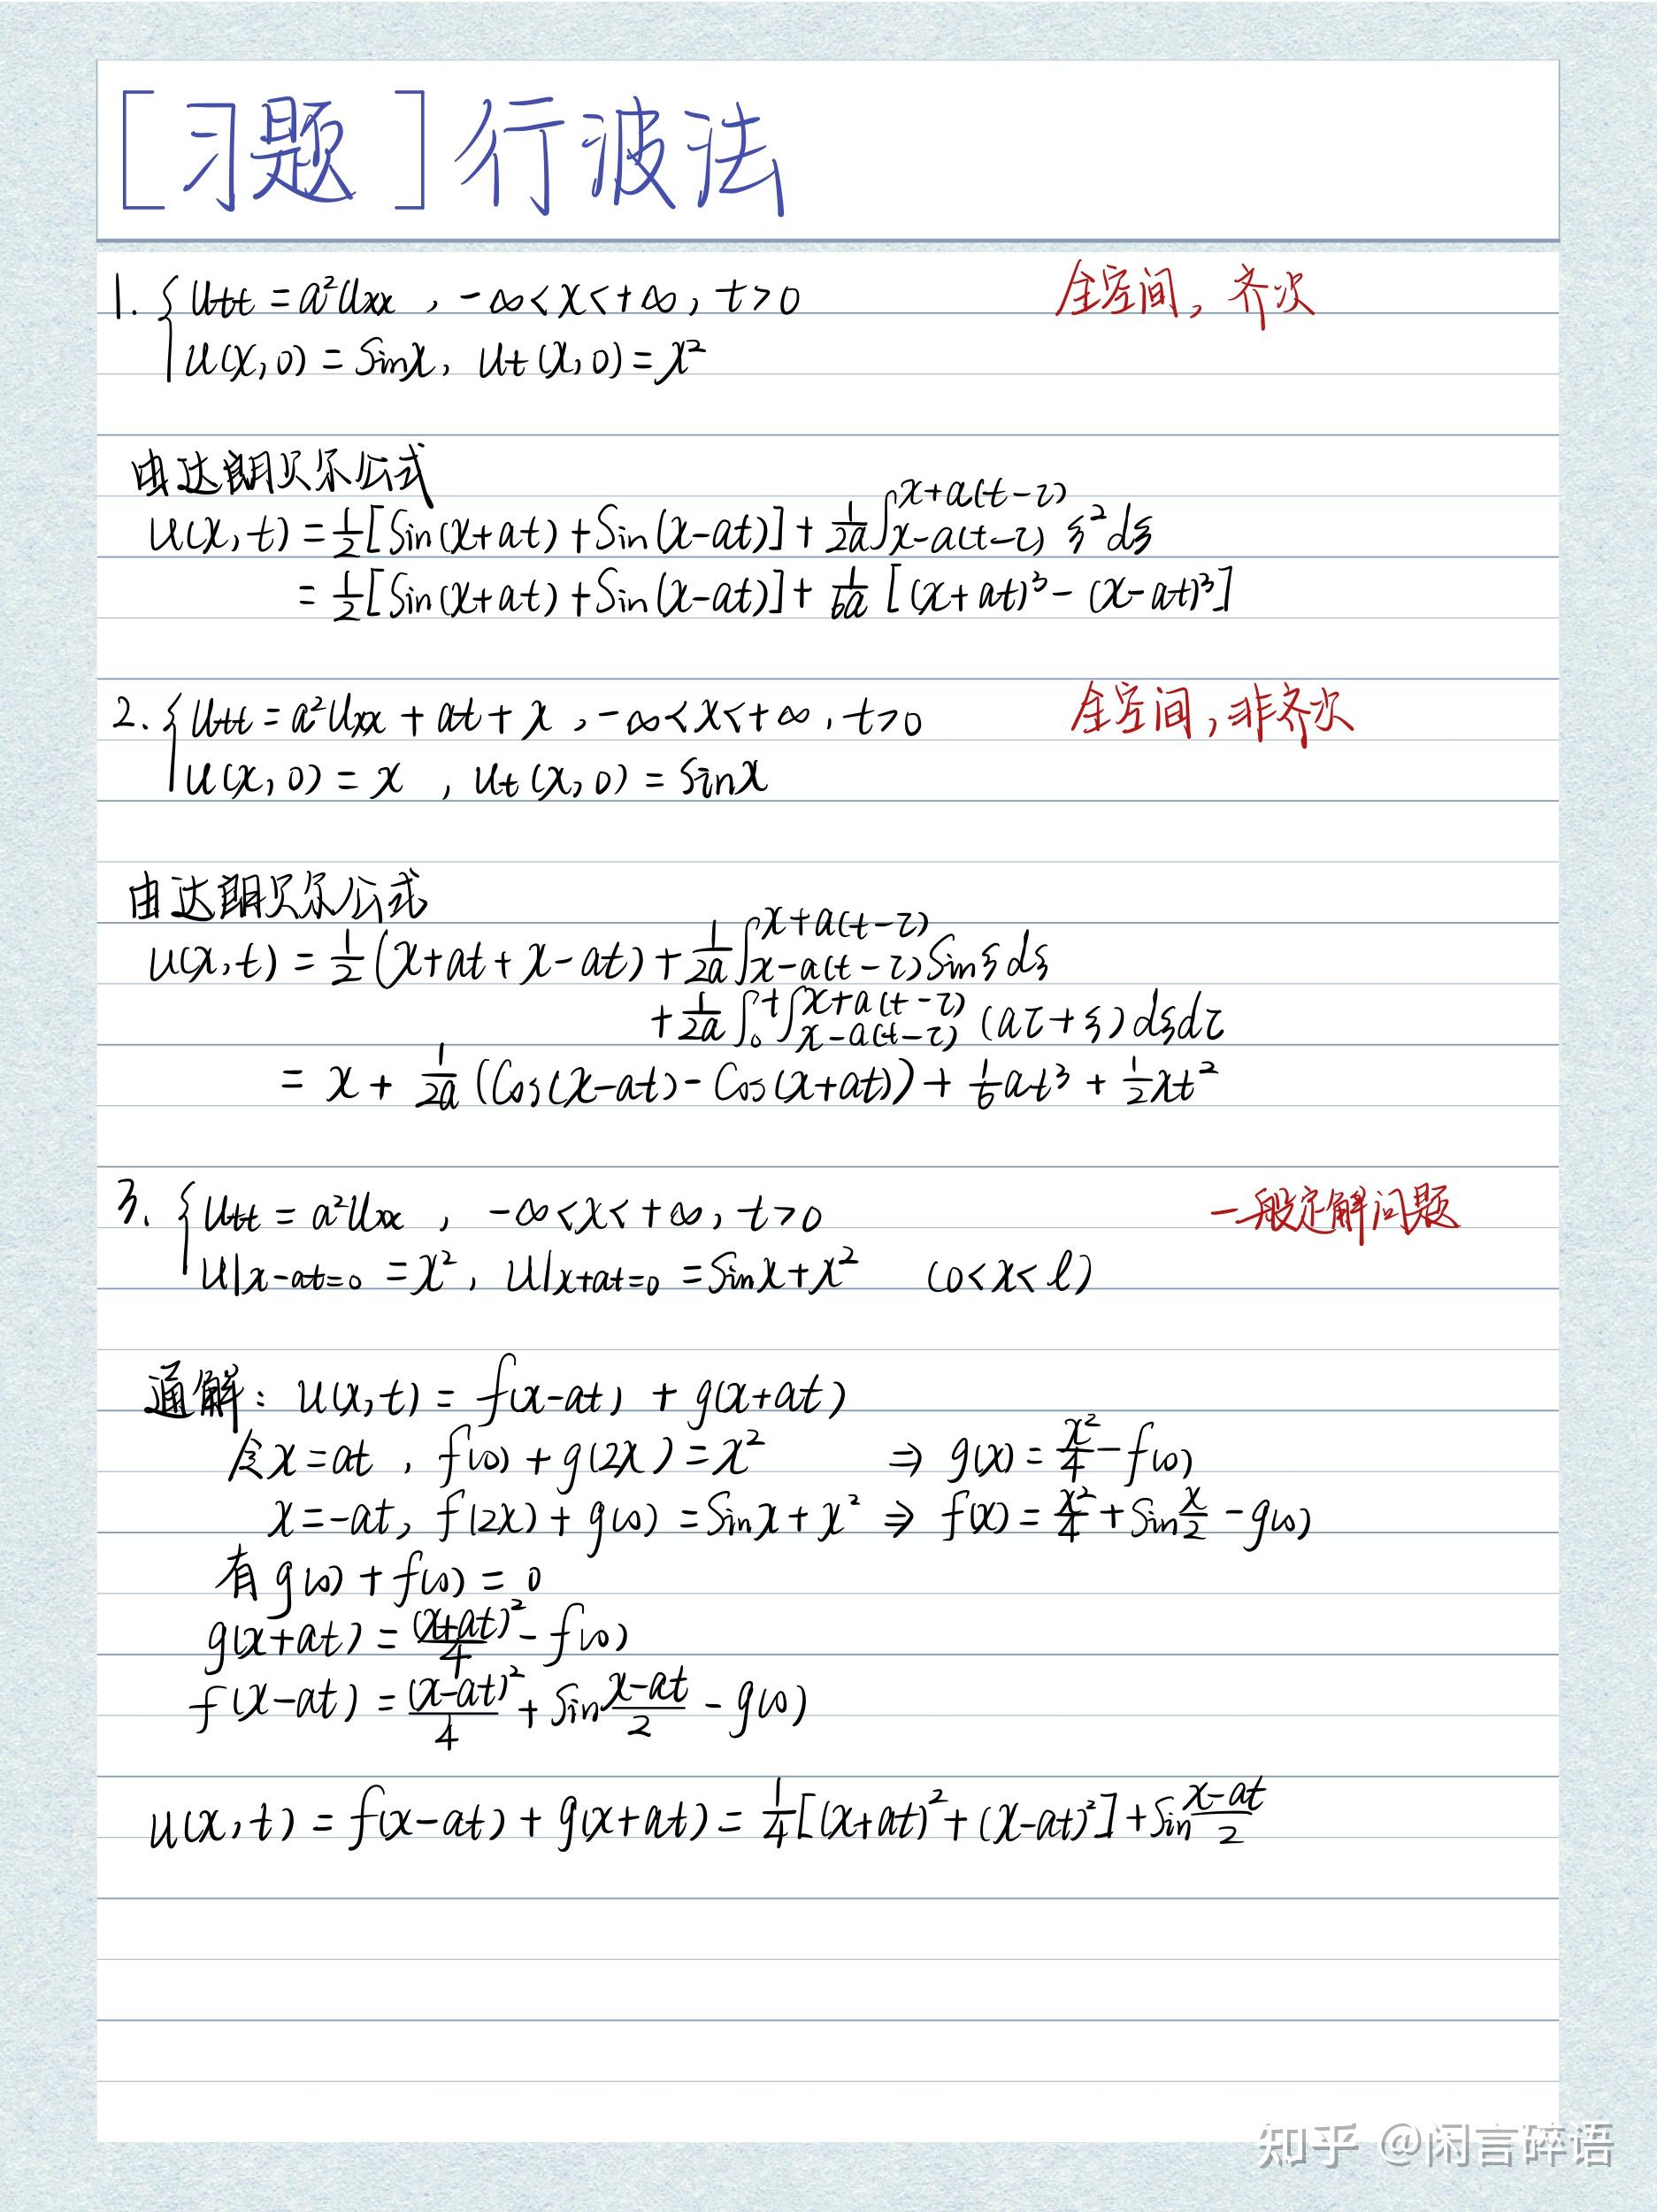 [习题]行波法
1. { utt = a²uxx , -∞<x<+∞, t>0 全空间, 齐次
u(x,0) = sinx, ut(x,0) = x²
由达朗贝尔公式
u(x,t) = 1/2[sin(x+at)+sin(x-at)] + 1/2a ∫_{x-a(t-τ)}^{x+a(t-τ)} ξ²dξ
= 1/2[sin(x+at)+sin(x-at)] + 1/6a [(x+at)³-(x-at)³]
2. { utt = a²uxx + at + x , -∞<x<+∞, t>0 全空间, 非齐次
u(x,0) = x , ut(x,0) = sinx
由达朗贝尔公式
u(x,t) = 1/2(x+at+x-at) + 1/2a ∫_{x-a(t-τ)}^{x+a(t-τ)} sinξdξ
+ 1/2a ∫_0^t ∫_{x-a(t-τ)}^{x+a(t-τ)} (aτ+ξ)dξdτ
= x + 1/2a (cos(x-at)-cos(x+at)) + 1/6at³ + 1/2xt²
3. { utt = a²uxx , -∞<x<+∞, t>0 一般定解问题
u|x-at=0 = x², u|x+at=0 = sinx+x² (0<x<l)
通解: u(x,t) = f(x-at) + g(x+at)
令x=at , f(0)+g(2x)=x² ⇒ g(x) = x²/4 - f(0)
x=-at, f(2x)+g(0)=sinx+x² ⇒ f(x) = x²/4 + sin x/2 - g(0)
有g(0)+f(0)=0
g(x+at) = (x+at)²/4 - f(0)
f(x-at) = (x-at)²/4 + sin (x-at)/2 - g(0)
u(x,t) = f(x-at)+g(x+at) = 1/4[(x+at)²+(x-at)²] + sin (x-at)/2
知乎 @闲言碎语